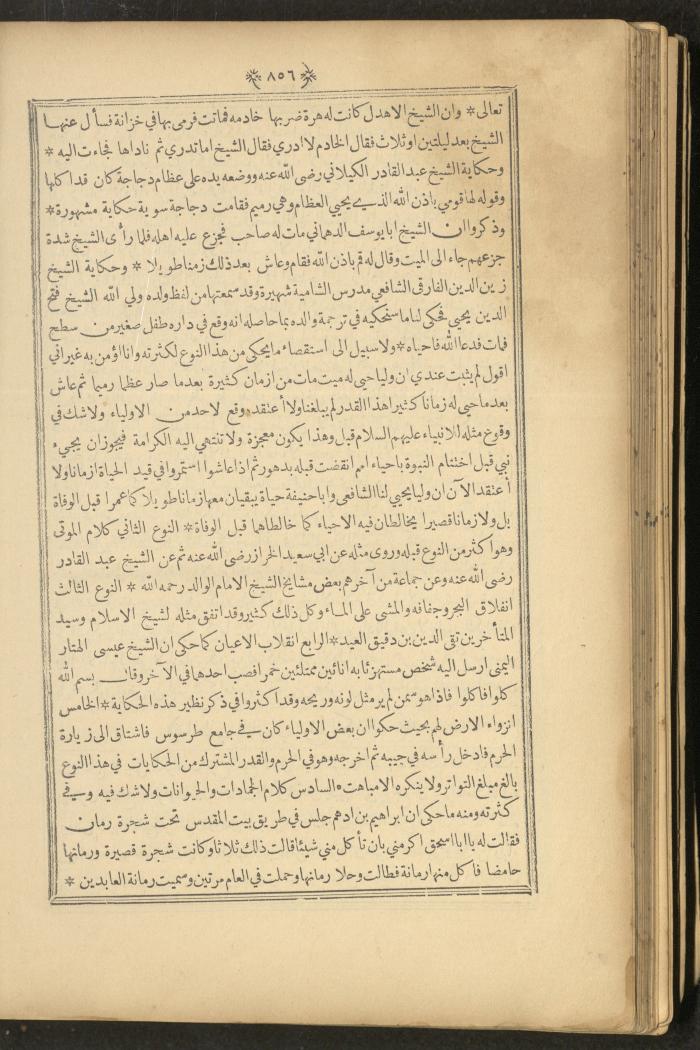 ٨٥٦
تعالى * وان الشيخ الاهدل كانت له هرة ضربها خادمه فماتت فرمى بها في خزانة فسأل عنها
الشيخ بعد ليلتين او ثلاث فقال الخادم لا ادري فقال الشيخ اما تدري ثم ناداها فجاءت اليه *
وحكاية الشيخ عبد القادر الكيلاني رضى الله عنه ووضعه يده على عظام دجاجة كان قد اكلها
وقوله لها قومي باذن الله الذي يحيي العظام وهي رميم فقامت دجاجة سوية حكاية مشهورة *
وذكروا ان الشيخ ابا يوسف الدهماني مات له صاحب فجزع عليه اهله فلما رأى الشيخ شدة
جزعهم جاء الى الميت وقال له قم باذن الله فقام وعاش بعد ذلك زمنا طويلا * وحكاية الشيخ
زين الدين الفارقى الشافعي مدرس الشامية شهيرة وقد سمعتها من لفظ ولده ولي الله الشيخ فتح
الدين يحيى فحكى لنا ما سنحكيه في ترجمة والده بما حاصله انه وقع في داره طفل صغير من سطح
فمات فدعا الله فاحياه * ولا سبيل الى استقصاء ما يحكى من هذا النوع لكثرته وانا اؤمن به غير اني
اقول لم يثبت عندي ان وليا حيي له ميت مات من ازمان كثيرة بعد ما صار عظما رميما ثم عاش
بعد ما حيي له زمانا كثيرا هذا القدر لم يبلغنا ولا أعتقد وقع لاحد من الاولياء ولا شك في
وقوع مثله للانبياء عليهم السلام قبل وهذا يكون معجزة ولا تنتهي اليه الكرامة فيجوز ان يجيء
نبي قبل اختتام النبوة باحياء امم انقضت قبله بدهور ثم اذا عاشوا استمروا في قيد الحياة ازمانا ولا
أعتقد الآن ان وليا يحيي لنا الشافعى وابا حنيفة حياة يبقيان معها زمانا طويلا كما عمرا قبل الوفاة
بل ولا زمانا قصيرا يخالطان فيه الاحياء كما خالطاهما قبل الوفاة * النوع الثاني كلام الموتى
وهو اكثر من النوع قبله وروى مثله عن ابي سعيد الخراز رضى الله عنه ثم عن الشيخ عبد القادر
رضى الله عنه وعن جماعة من آخرهم بعض مشايخ الشيخ الامام الوالد رحمه الله * النوع الثالث
انفلاق البحر وجفافه والمشي على الماء وكل ذلك كثير وقد اتفق مثله لشيخ الاسلام وسيد
المتأخرين تقى الدين بن دقيق العيد * الرابع انقلاب الاعيان كما حكى ان الشيخ عيسى الهتار
اليمنى ارسل اليه شخص مستهزئا به انائين ممتلئين خمرا فصب احدهما في الآخر وقال بسم الله
كلوا فاكلوا فاذا هو سمن لم ير مثل لونه وريحه وقد اكثروا في ذكر نظير هذه الحكاية * الخامس
انزواء الارض لهم بحيث حكوا ان بعض الاولياء كان في جامع طرسوس فاشتاق الى زيارة
الحرم فادخل رأسه في جيبه ثم اخرجه وهو في الحرم والقدر المشترك من الحكايات في هذا النوع
بالغ مبلغ التواتر ولا ينكره الا مباهت * السادس كلام الجمادات والحيوانات ولا شك فيه وفي
كثرته ومنه ما حكى ان ابراهيم بن ادهم جلس في طريق بيت المقدس تحت شجرة رمان
فقالت له يا ابا اسحق اكرمني بان تأكل مني شيئا قالت ذلك ثلاثا وكانت شجرة قصيرة ورمانها
حامضا فاكل منها رمانة فطالت وحلا رمانها وحملت في العام مرتين وسميت رمانة العابدين *